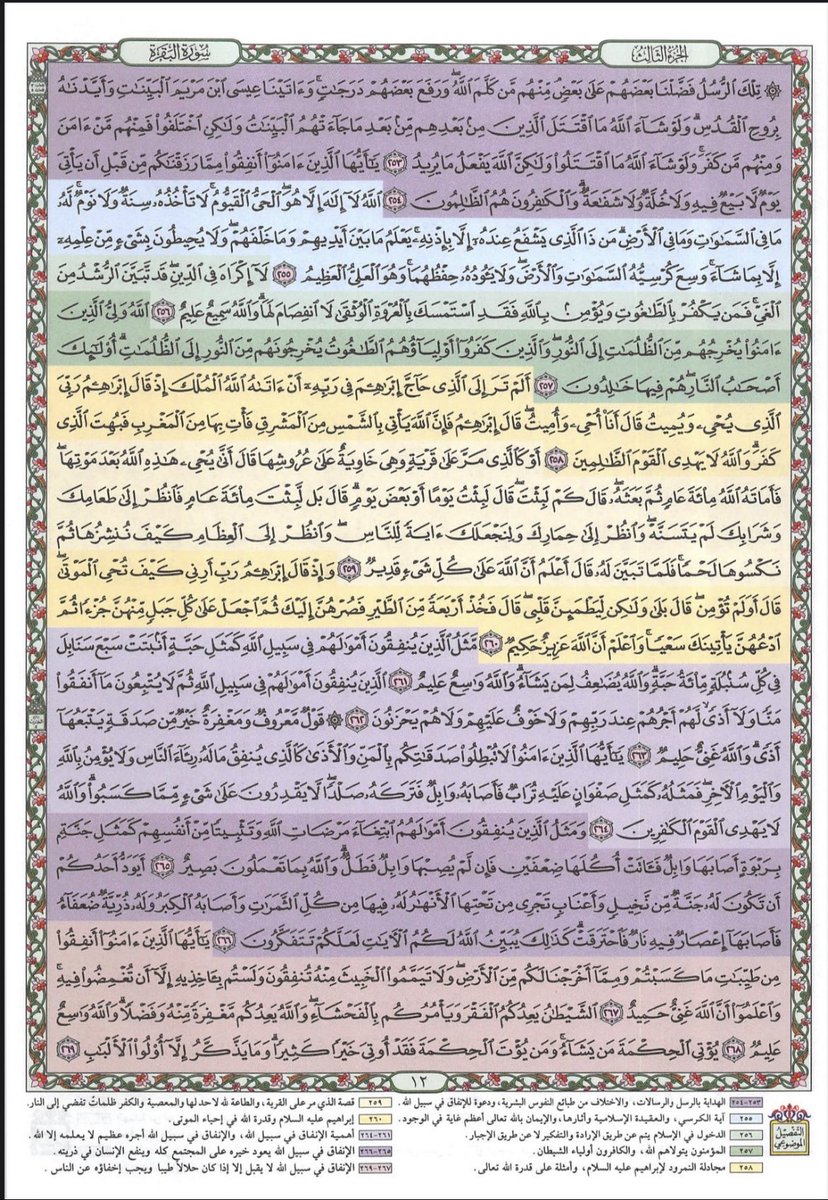 الجزء الثالث
سورة البقرة
۞ تِلْكَ الرُّسُلُ فَضَّلْنَا بَعْضَهُمْ عَلَىٰ بَعْضٍ مِّنْهُم مَّن كَلَّمَ اللَّهُ وَرَفَعَ بَعْضَهُمْ دَرَجَاتٍ وَءَاتَيْنَا عِيسَى ابْنَ مَرْيَمَ الْبَيِّنَاتِ وَأَيَّدْنَاهُ
بِرُوحِ الْقُدُسِ وَلَوْ شَاءَ اللَّهُ مَا اقْتَتَلَ الَّذِينَ مِنْ بَعْدِهِم مِّنْ بَعْدِ مَا جَاءَتْهُمُ الْبَيِّنَاتُ وَلَٰكِنِ اخْتَلَفُوا فَمِنْهُم مَّنْ ءَامَنَ
وَمِنْهُم مَّن كَفَرَ وَلَوْ شَاءَ اللَّهُ مَا اقْتَتَلُوا وَلَٰكِنَّ اللَّهَ يَفْعَلُ مَا يُرِيدُ ٢٥٣ يَا أَيُّهَا الَّذِينَ ءَامَنُوا أَنفِقُوا مِمَّا رَزَقْنَاكُم مِّن قَبْلِ أَن يَأْتِيَ
يَوْمٌ لَّا بَيْعٌ فِيهِ وَلَا خُلَّةٌ وَلَا شَفَاعَةٌ وَالْكَافِرُونَ هُمُ الظَّالِمُونَ ٢٥٤ اللَّهُ لَا إِلَٰهَ إِلَّا هُوَ الْحَيُّ الْقَيُّومُ لَا تَأْخُذُهُ سِنَةٌ وَلَا نَوْمٌ لَّهُ
مَا فِي السَّمَاوَاتِ وَمَا فِي الْأَرْضِ مَن ذَا الَّذِي يَشْفَعُ عِندَهُ إِلَّا بِإِذْنِهِ يَعْلَمُ مَا بَيْنَ أَيْدِيهِمْ وَمَا خَلْفَهُمْ وَلَا يُحِيطُونَ بِشَيْءٍ مِّنْ عِلْمِهِ
إِلَّا بِمَا شَاءَ وَسِعَ كُرْسِيُّهُ السَّمَاوَاتِ وَالْأَرْضَ وَلَا يَئُودُهُ حِفْظُهُمَا وَهُوَ الْعَلِيُّ الْعَظِيمُ ٢٥٥ لَا إِكْرَاهَ فِي الدِّينِ قَد تَّبَيَّنَ الرُّشْدُ مِنَ
الْغَيِّ فَمَن يَكْفُرْ بِالطَّاغُوتِ وَيُؤْمِنْ بِاللَّهِ فَقَدِ اسْتَمْسَكَ بِالْعُرْوَةِ الْوُثْقَىٰ لَا انفِصَامَ لَهَا وَاللَّهُ سَمِيعٌ عَلِيمٌ ٢٥٦ اللَّهُ وَلِيُّ الَّذِينَ
ءَامَنُوا يُخْرِجُهُم مِّنَ الظُّلُمَاتِ إِلَى النُّورِ وَالَّذِينَ كَفَرُوا أَوْلِيَاؤُهُمُ الطَّاغُوتُ يُخْرِجُونَهُم مِّنَ النُّورِ إِلَى الظُّلُمَاتِ أُولَٰئِكَ
أَصْحَابُ النَّارِ هُمْ فِيهَا خَالِدُونَ ٢٥٧ أَلَمْ تَرَ إِلَى الَّذِي حَاجَّ إِبْرَاهِيمَ فِي رَبِّهِ أَنْ ءَاتَاهُ اللَّهُ الْمُلْكَ إِذْ قَالَ إِبْرَاهِيمُ رَبِّيَ
الَّذِي يُحْيِي وَيُمِيتُ قَالَ أَنَا أُحْيِي وَأُمِيتُ قَالَ إِبْرَاهِيمُ فَإِنَّ اللَّهَ يَأْتِي بِالشَّمْسِ مِنَ الْمَشْرِقِ فَأْتِ بِهَا مِنَ الْمَغْرِبِ فَبُهِتَ الَّذِي
كَفَرَ وَاللَّهُ لَا يَهْدِي الْقَوْمَ الظَّالِمِينَ ٢٥٨ أَوْ كَالَّذِي مَرَّ عَلَىٰ قَرْيَةٍ وَهِيَ خَاوِيَةٌ عَلَىٰ عُرُوشِهَا قَالَ أَنَّىٰ يُحْيِي هَٰذِهِ اللَّهُ بَعْدَ مَوْتِهَا
فَأَمَاتَهُ اللَّهُ مِائَةَ عَامٍ ثُمَّ بَعَثَهُ قَالَ كَمْ لَبِثْتَ قَالَ لَبِثْتُ يَوْمًا أَوْ بَعْضَ يَوْمٍ قَالَ بَل لَّبِثْتَ مِائَةَ عَامٍ فَانظُرْ إِلَىٰ طَعَامِكَ
وَشَرَابِكَ لَمْ يَتَسَنَّهْ وَانظُرْ إِلَىٰ حِمَارِكَ وَلِنَجْعَلَكَ ءَايَةً لِّلنَّاسِ وَانظُرْ إِلَى الْعِظَامِ كَيْفَ نُنشِزُهَا ثُمَّ
نَكْسُوهَا لَحْمًا فَلَمَّا تَبَيَّنَ لَهُ قَالَ أَعْلَمُ أَنَّ اللَّهَ عَلَىٰ كُلِّ شَيْءٍ قَدِيرٌ ٢٥٩ وَإِذْ قَالَ إِبْرَاهِيمُ رَبِّ أَرِنِي كَيْفَ تُحْيِي الْمَوْتَىٰ
قَالَ أَوَلَمْ تُؤْمِن قَالَ بَلَىٰ وَلَٰكِن لِّيَطْمَئِنَّ قَلْبِي قَالَ فَخُذْ أَرْبَعَةً مِّنَ الطَّيْرِ فَصُرْهُنَّ إِلَيْكَ ثُمَّ اجْعَلْ عَلَىٰ كُلِّ جَبَلٍ مِّنْهُنَّ جُزْءًا ثُمَّ
ادْعُهُنَّ يَأْتِينَكَ سَعْيًا وَاعْلَمْ أَنَّ اللَّهَ عَزِيزٌ حَكِيمٌ ٢٦٠ مَّثَلُ الَّذِينَ يُنفِقُونَ أَمْوَالَهُمْ فِي سَبِيلِ اللَّهِ كَمَثَلِ حَبَّةٍ أَنْبَتَتْ سَبْعَ سَنَابِلَ
فِي كُلِّ سُنْبُلَةٍ مِّائَةُ حَبَّةٍ وَاللَّهُ يُضَاعِفُ لِمَن يَشَاءُ وَاللَّهُ وَاسِعٌ عَلِيمٌ ٢٦١ الَّذِينَ يُنفِقُونَ أَمْوَالَهُمْ فِي سَبِيلِ اللَّهِ ثُمَّ لَا يُتْبِعُونَ مَا أَنفَقُوا
مَنًّا وَلَا أَذًى لَّهُمْ أَجْرُهُمْ عِندَ رَبِّهِمْ وَلَا خَوْفٌ عَلَيْهِمْ وَلَا هُمْ يَحْزَنُونَ ٢٦٢ ۞ قَوْلٌ مَّعْرُوفٌ وَمَغْفِرَةٌ خَيْرٌ مِّن صَدَقَةٍ يَتْبَعُهَا
أَذًى وَاللَّهُ غَنِيٌّ حَلِيمٌ ٢٦٣ يَا أَيُّهَا الَّذِينَ ءَامَنُوا لَا تُبْطِلُوا صَدَقَاتِكُم بِالْمَنِّ وَالْأَذَىٰ كَالَّذِي يُنفِقُ مَالَهُ رِئَاءَ النَّاسِ وَلَا يُؤْمِنُ بِاللَّهِ
وَالْيَوْمِ الْآخِرِ فَمَثَلُهُ كَمَثَلِ صَفْوَانٍ عَلَيْهِ تُرَابٌ فَأَصَابَهُ وَابِلٌ فَتَرَكَهُ صَلْدًا لَّا يَقْدِرُونَ عَلَىٰ شَيْءٍ مِّمَّا كَسَبُوا وَاللَّهُ
لَا يَهْدِي الْقَوْمَ الْكَافِرِينَ ٢٦٤ وَمَثَلُ الَّذِينَ يُنفِقُونَ أَمْوَالَهُمُ ابْتِغَاءَ مَرْضَاتِ اللَّهِ وَتَثْبِيتًا مِّنْ أَنفُسِهِمْ كَمَثَلِ جَنَّةٍ
بِرَبْوَةٍ أَصَابَهَا وَابِلٌ فَآتَتْ أُكُلَهَا ضِعْفَيْنِ فَإِن لَّمْ يُصِبْهَا وَابِلٌ فَطَلٌّ وَاللَّهُ بِمَا تَعْمَلُونَ بَصِيرٌ ٢٦٥ أَيَوَدُّ أَحَدُكُمْ
أَن تَكُونَ لَهُ جَنَّةٌ مِّن نَّخِيلٍ وَأَعْنَابٍ تَجْرِي مِن تَحْتِهَا الْأَنْهَارُ لَهُ فِيهَا مِن كُلِّ الثَّمَرَاتِ وَأَصَابَهُ الْكِبَرُ وَلَهُ ذُرِّيَّةٌ ضُعَفَاءُ
فَأَصَابَهَا إِعْصَارٌ فِيهِ نَارٌ فَاحْتَرَقَتْ كَذَٰلِكَ يُبَيِّنُ اللَّهُ لَكُمُ الْآيَاتِ لَعَلَّكُمْ تَتَفَكَّرُونَ ٢٦٦ يَا أَيُّهَا الَّذِينَ ءَامَنُوا أَنفِقُوا
مِن طَيِّبَاتِ مَا كَسَبْتُمْ وَمِمَّا أَخْرَجْنَا لَكُم مِّنَ الْأَرْضِ وَلَا تَيَمَّمُوا الْخَبِيثَ مِنْهُ تُنفِقُونَ وَلَسْتُم بِآخِذِيهِ إِلَّا أَن تُغْمِضُوا فِيهِ
وَاعْلَمُوا أَنَّ اللَّهَ غَنِيٌّ حَمِيدٌ ٢٦٧ الشَّيْطَانُ يَعِدُكُمُ الْفَقْرَ وَيَأْمُرُكُم بِالْفَحْشَاءِ وَاللَّهُ يَعِدُكُم مَّغْفِرَةً مِّنْهُ وَفَضْلًا وَاللَّهُ وَاسِعٌ
عَلِيمٌ ٢٦٨ يُؤْتِي الْحِكْمَةَ مَن يَشَاءُ وَمَن يُؤْتَ الْحِكْمَةَ فَقَدْ أُوتِيَ خَيْرًا كَثِيرًا وَمَا يَذَّكَّرُ إِلَّا أُولُوا الْأَلْبَابِ ٢٦٩
١٢
التفصيل الموضوعي
٢٥٣-٢٥٤ الهداية بالرسل والرسالات، والاختلاف من طبائع النفوس البشرية، ودعوة للإنفاق في سبيل الله.
٢٥٥ آية الكرسي، والعقيدة الإسلامية وآثارها، والإيمان بالله تعالى أعظم غاية في الوجود.
٢٥٦ الدخول في الإسلام يتم عن طريق الإرادة والتفكير لا عن طريق الإجبار.
٢٥٧ المؤمنون يتولاهم الله، والكافرون أولياء الشيطان.
٢٥٨ مجادلة النمرود لإبراهيم عليه السلام، وأمثلة على قدرة الله تعالى.
٢٥٩ قصة الذي مر على القرية، والطاعة لله لاحد لها والمعصية والكفر ظلمات تفضي إلى النار.
٢٦٠ إبراهيم عليه السلام وقدرة الله في إحياء الموتى.
٢٦١-٢٦٤ أهمية الإنفاق في سبيل الله، والإنفاق في سبيل الله أجره عظيم لا يعلمه إلا الله.
٢٦٥-٢٦٦ الإنفاق في سبيل الله يعود خيره على المجتمع كله وينفع الإنسان في ذريته.
٢٦٧-٢٦٩ الإنفاق في سبيل الله لا يقبل إلا إذا كان حلالاً طيبا ويجب إخفاؤه عن الناس.